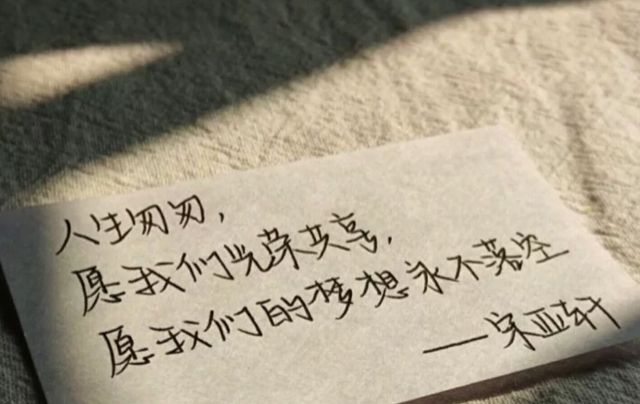 人生匆匆，
愿我们光荣共享，
愿我们的梦想永不落空
——宋亚轩